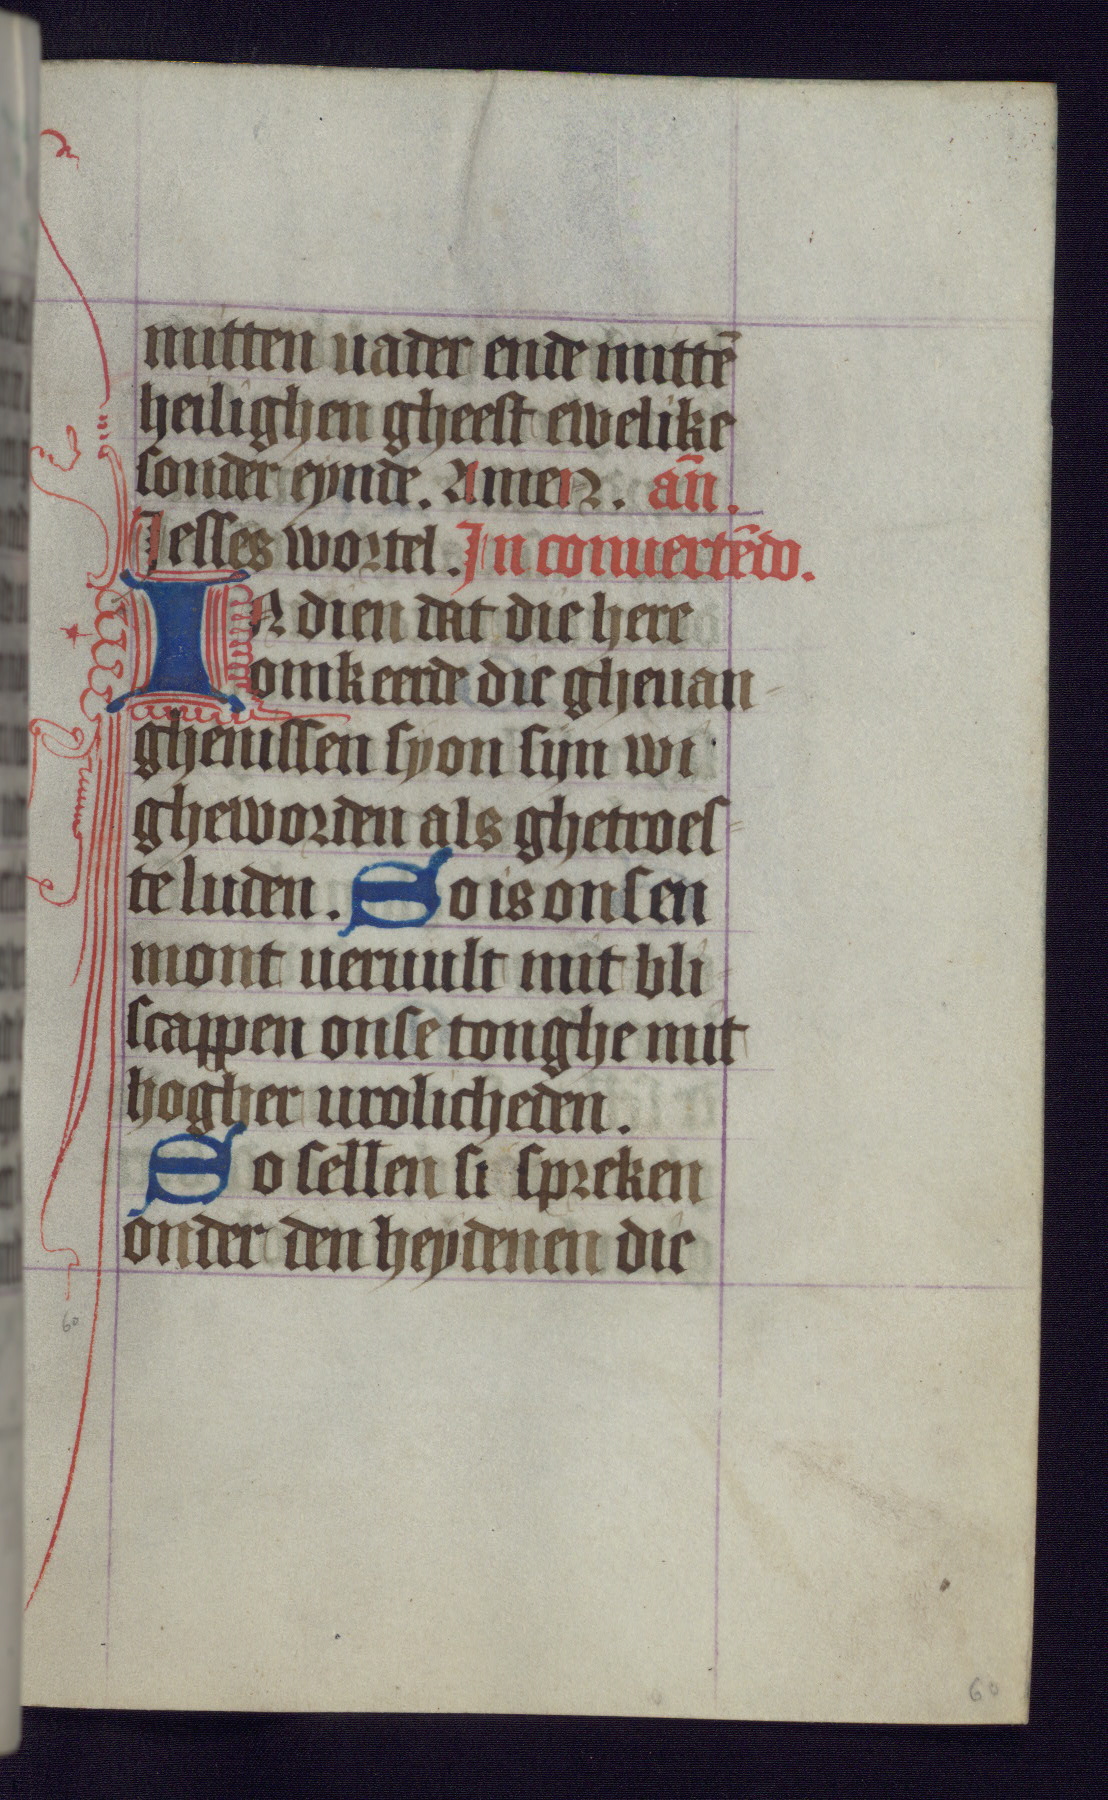 mitten uader ende mittē
heilighen gheest ewelike
sonder eynde. Amen. an̄.
Jesses wortel. In conuertēdo.
IN dien dat die here
omkeerde die gheuan-
ghenissen syon sijn wi
gheworden als ghetroes-
te luden. So is onsen
mont veruult mit bli-
scappen onse tonghe mit
hogher urolicheden.
So sellen si spreken
onder den heydenen die
60
60